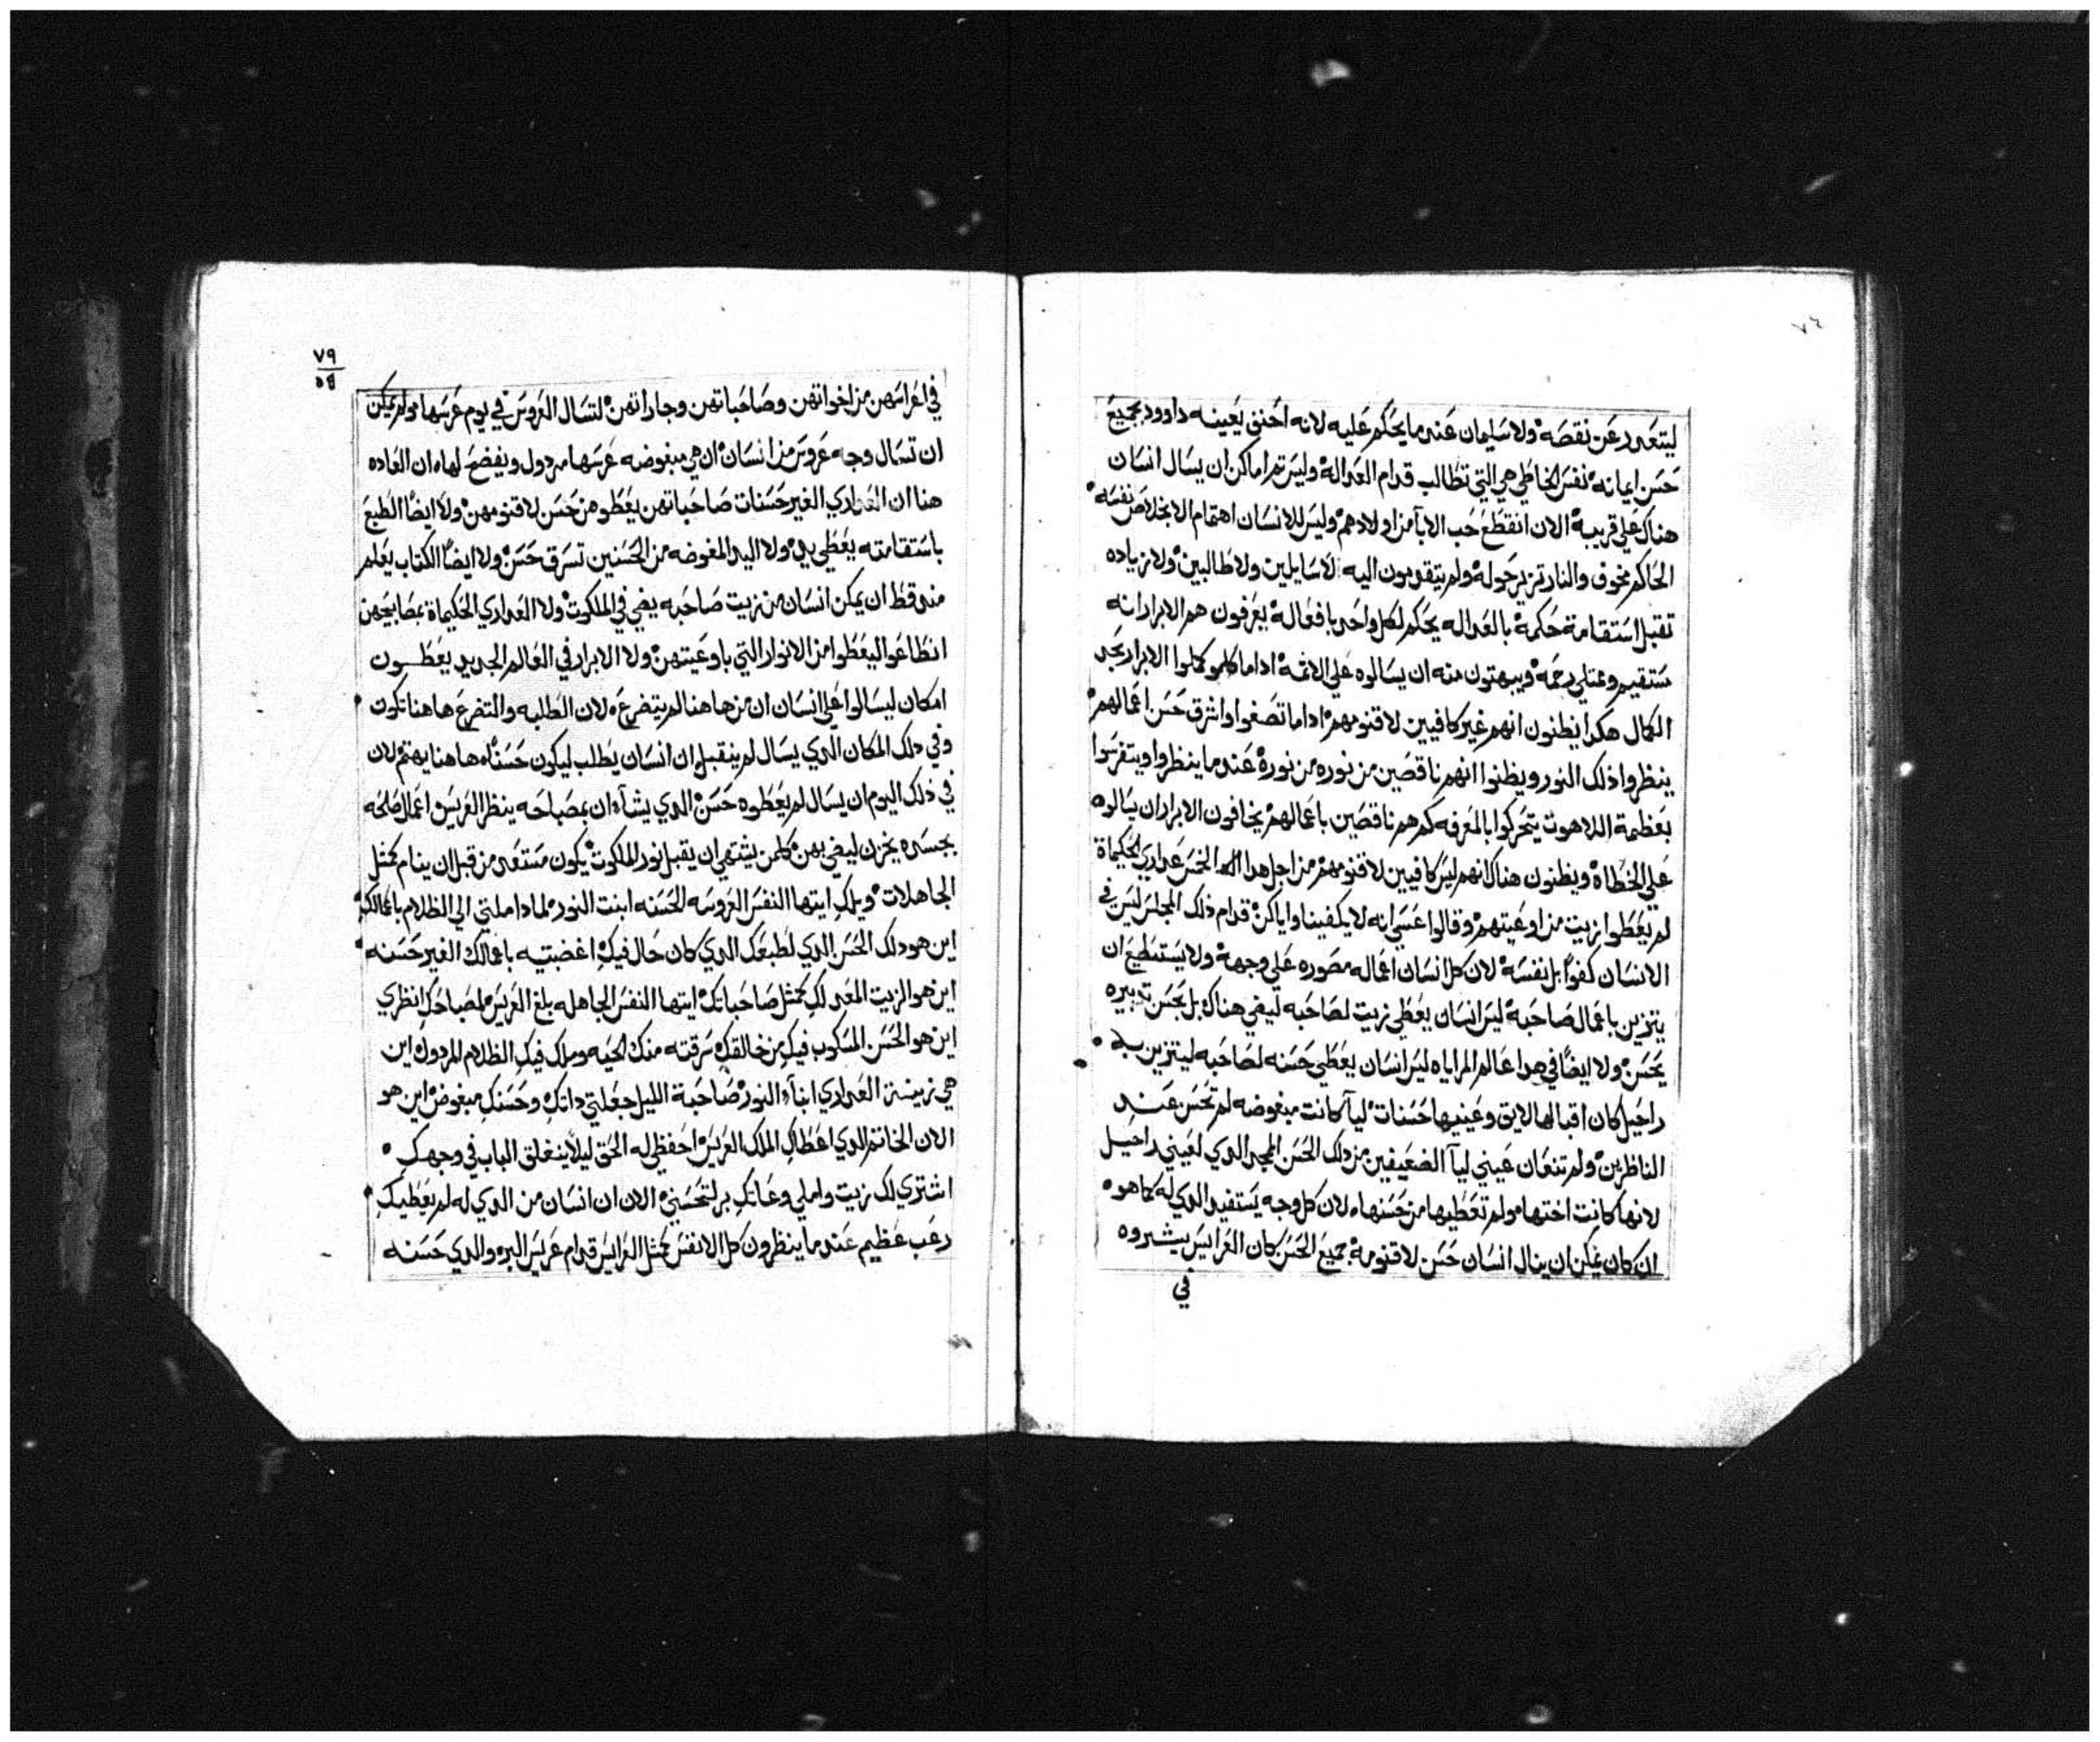 ليتعدد عن نقصه ولا سليمان عند ما يحكم عليه لانه احنق يعينه داوود بجميع
حسن ايمانه نفس الخاطي هي التي تطالب قدام العداله وليس تم امكن ان يسال انسان
هناك علي قريبه الان انقطع حب الابآ من اولادهم وليس للانسان اهتمام الا بخلاص نفسه
الحاكم مخوف والنار تزير حوله ولم يتقدمون اليه لا سايلين ولا طالبين ولا زياده
تقبل استقامة حكمه بالعداله يحكم لكل واحد بافعاله يعرفون هم الابرار انه
مستقيم وممتلي رحمه ويبهتون منه ان يسالوه علي الاثمه اداما كلمو كملوا الابرار بحد
الكمال هكدا يظنون انهم غير كافيين لاقنومهم اداما تصفوا واشرق حسن اعمالهم
ينظروا ذلك النور ويظنوا انهم ناقصين من نوره من نوره عند ما ينظروا ويتفرسوا
بعظمة اللاهوت يتحركوا بالمعرفه كم هم ناقصين باعمالهم يخافون الابرار ان يسالوه
علي الخطاه ويظنون هناك انهم ليس كافيين لاقنومهم من اجل هدا الخمس عداري الحكيماة
لم يعطوا زيت من اوعيتهم وقالوا عسي انه لا يكفينا واياكن قدام ذلك المجلس ليس في
الانسان كفوًا بل نفسه لان كل انسان اعماله مصوره علي وجهه ولا يستطيع ان
يتزين باعمال صاحبه ليس انسان يعطي زيت لصاحبه ليضي هناك بل بحسن تدبيره
يحسن ولا ايضًا في هدا عالم المراياه ليس انسان يعطي حسنه لصاحبه ليتزين به
راحيل كان اقبالها لايق وعينيها حسنات ليآ كانت مبغوضه لم تحسن عند
الناظرين ولم تنعان عيني ليآ الضعيفين من دلك الحسن المجد الدي لعيني راحيل
لانها كانت اختها ولم تعطيها من حسنها لان كل وجه يستفيد الدي له كما هو
ان كان يمكن ان ينال انسان حسن لاقنومه جميع الحسن كان العرايس يشروه
في
٧٩
في اعراسهن من اخواتهن وصاحباتهن وجاراتهن لتسال العروس في يوم عرسها ولم يمكن
ان تسال وجه عروس من انسان ان هي مبغوضه عرسها مردول ويفضح لها ان العاده
هنا ان العداري الغير حسنات صاحباتهن يعطوهن حسن لاقنومهن ولا ايضًا الطبع
باستقامته يعطي بدي ولا اليد المغوضه من الحسنين تسرق حسن ولا ايضًا الكتاب يعلم
مند قط ان يمكن انسان من زيت صاحبه يضي في الملكوت ولا العداري الحكيماة بمصابيحهن
انطاعوا ليعطوا من الانوار التي باوعيتهن ولا الابرار في العالم الجديد يعطون
امكان ليسالوا علي انسان ان من هاهنا لم يتضرع لان الطلبه والتضرع هاهنا تكون
وفي دلك المكان الدي يسال لم ينقبل ان انسان يطلب ليكون حسنًا له هاهنا يهتم لان
في ذلك اليوم ان يسال لم يعطوه حسن الدي يشآ ان بمصباحه ينظر العريس اعمال صالحه
بجسده يخزن ليضي بهن كلمن يشتهي ان يقبل نور الملكوت يكون مستعد من قبل ان ينام كمثل
الجاهلات ويلك ايتها النفس العروسه الحسنه ابنت النور لمادا ملتي الي الظلام باعمالك
اين هو دلك الحسن الدي لطبعك الدي كان حال فيك اغضبتيه باعمالك الغير حسنه
اين هو الزيت المعد لك كمثل صاحباتك ايتها النفس الجاهله بلغ العريس لمصباحك انظري
اين هو الحسن المسكوب فيك من خالقك سرقته منك الحيه وملك فيك الظلام المردول اين
هي زينة العداري ابنآ النور صاحبة الليل جعلتي داتك وحسنك مبغوض اين هو
الان الخاتم الدي اعطاك الملك العريس احفظي له الحق ليلًا ينغلق الباب في وجهك
اشتري لك زيت واملي وعاتك بر لتحسني الان ان انسان من الدي له لم يعطيك
رعب عظيم عند ما ينظرون كل الانفس كمثل العرايس قدام عريس البر والدي حسنه